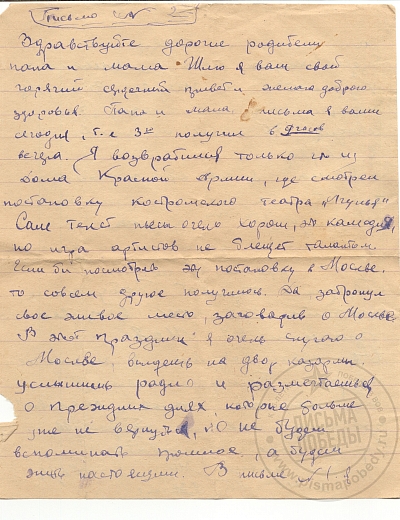 Письмо № 2
Здравствуйте дорогие родители
папа и мама Шлю я вам свой
горячий сердечный привет и желаю доброго
здоровья. Папа и мама письма я ваши
сегодня, т.е 3го получил в 9 часов
вечера. Я возвратился только из
дома Красной Армии, где смотрел
постановку костромского театра
Сам текст пьесы очень хорош, комедия,
но игра артистов не блещет талантом.
Если бы посмотрел эту постановку в Москве,
то совсем другое получилось. Да затронул
свое место, заговорив о Москве
В этот праздник я очень скучаю о
Москве, выйдешь на двор казармы
услышишь радио и размечтаешься
о прежних днях, которые больше
уже не вернутся, но не будем
вспоминать прошлое, а будем
жить настоящим. В письме
ПИСЬМА
ПОБЕДЫ
www.pismapobedy.ru